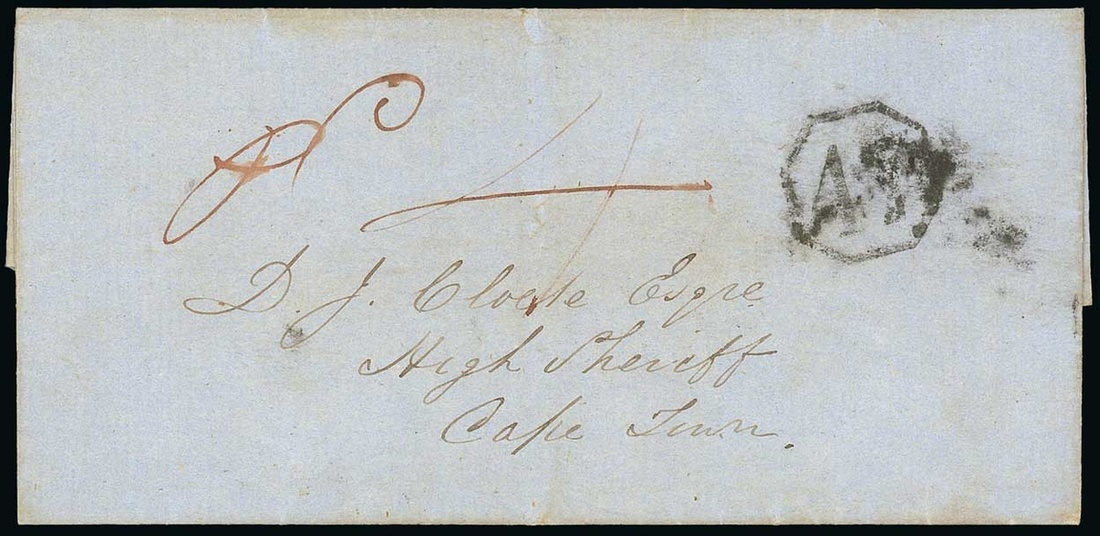 P 4
D. J. Cloete Esqre
High Sheriff
Cape Town.